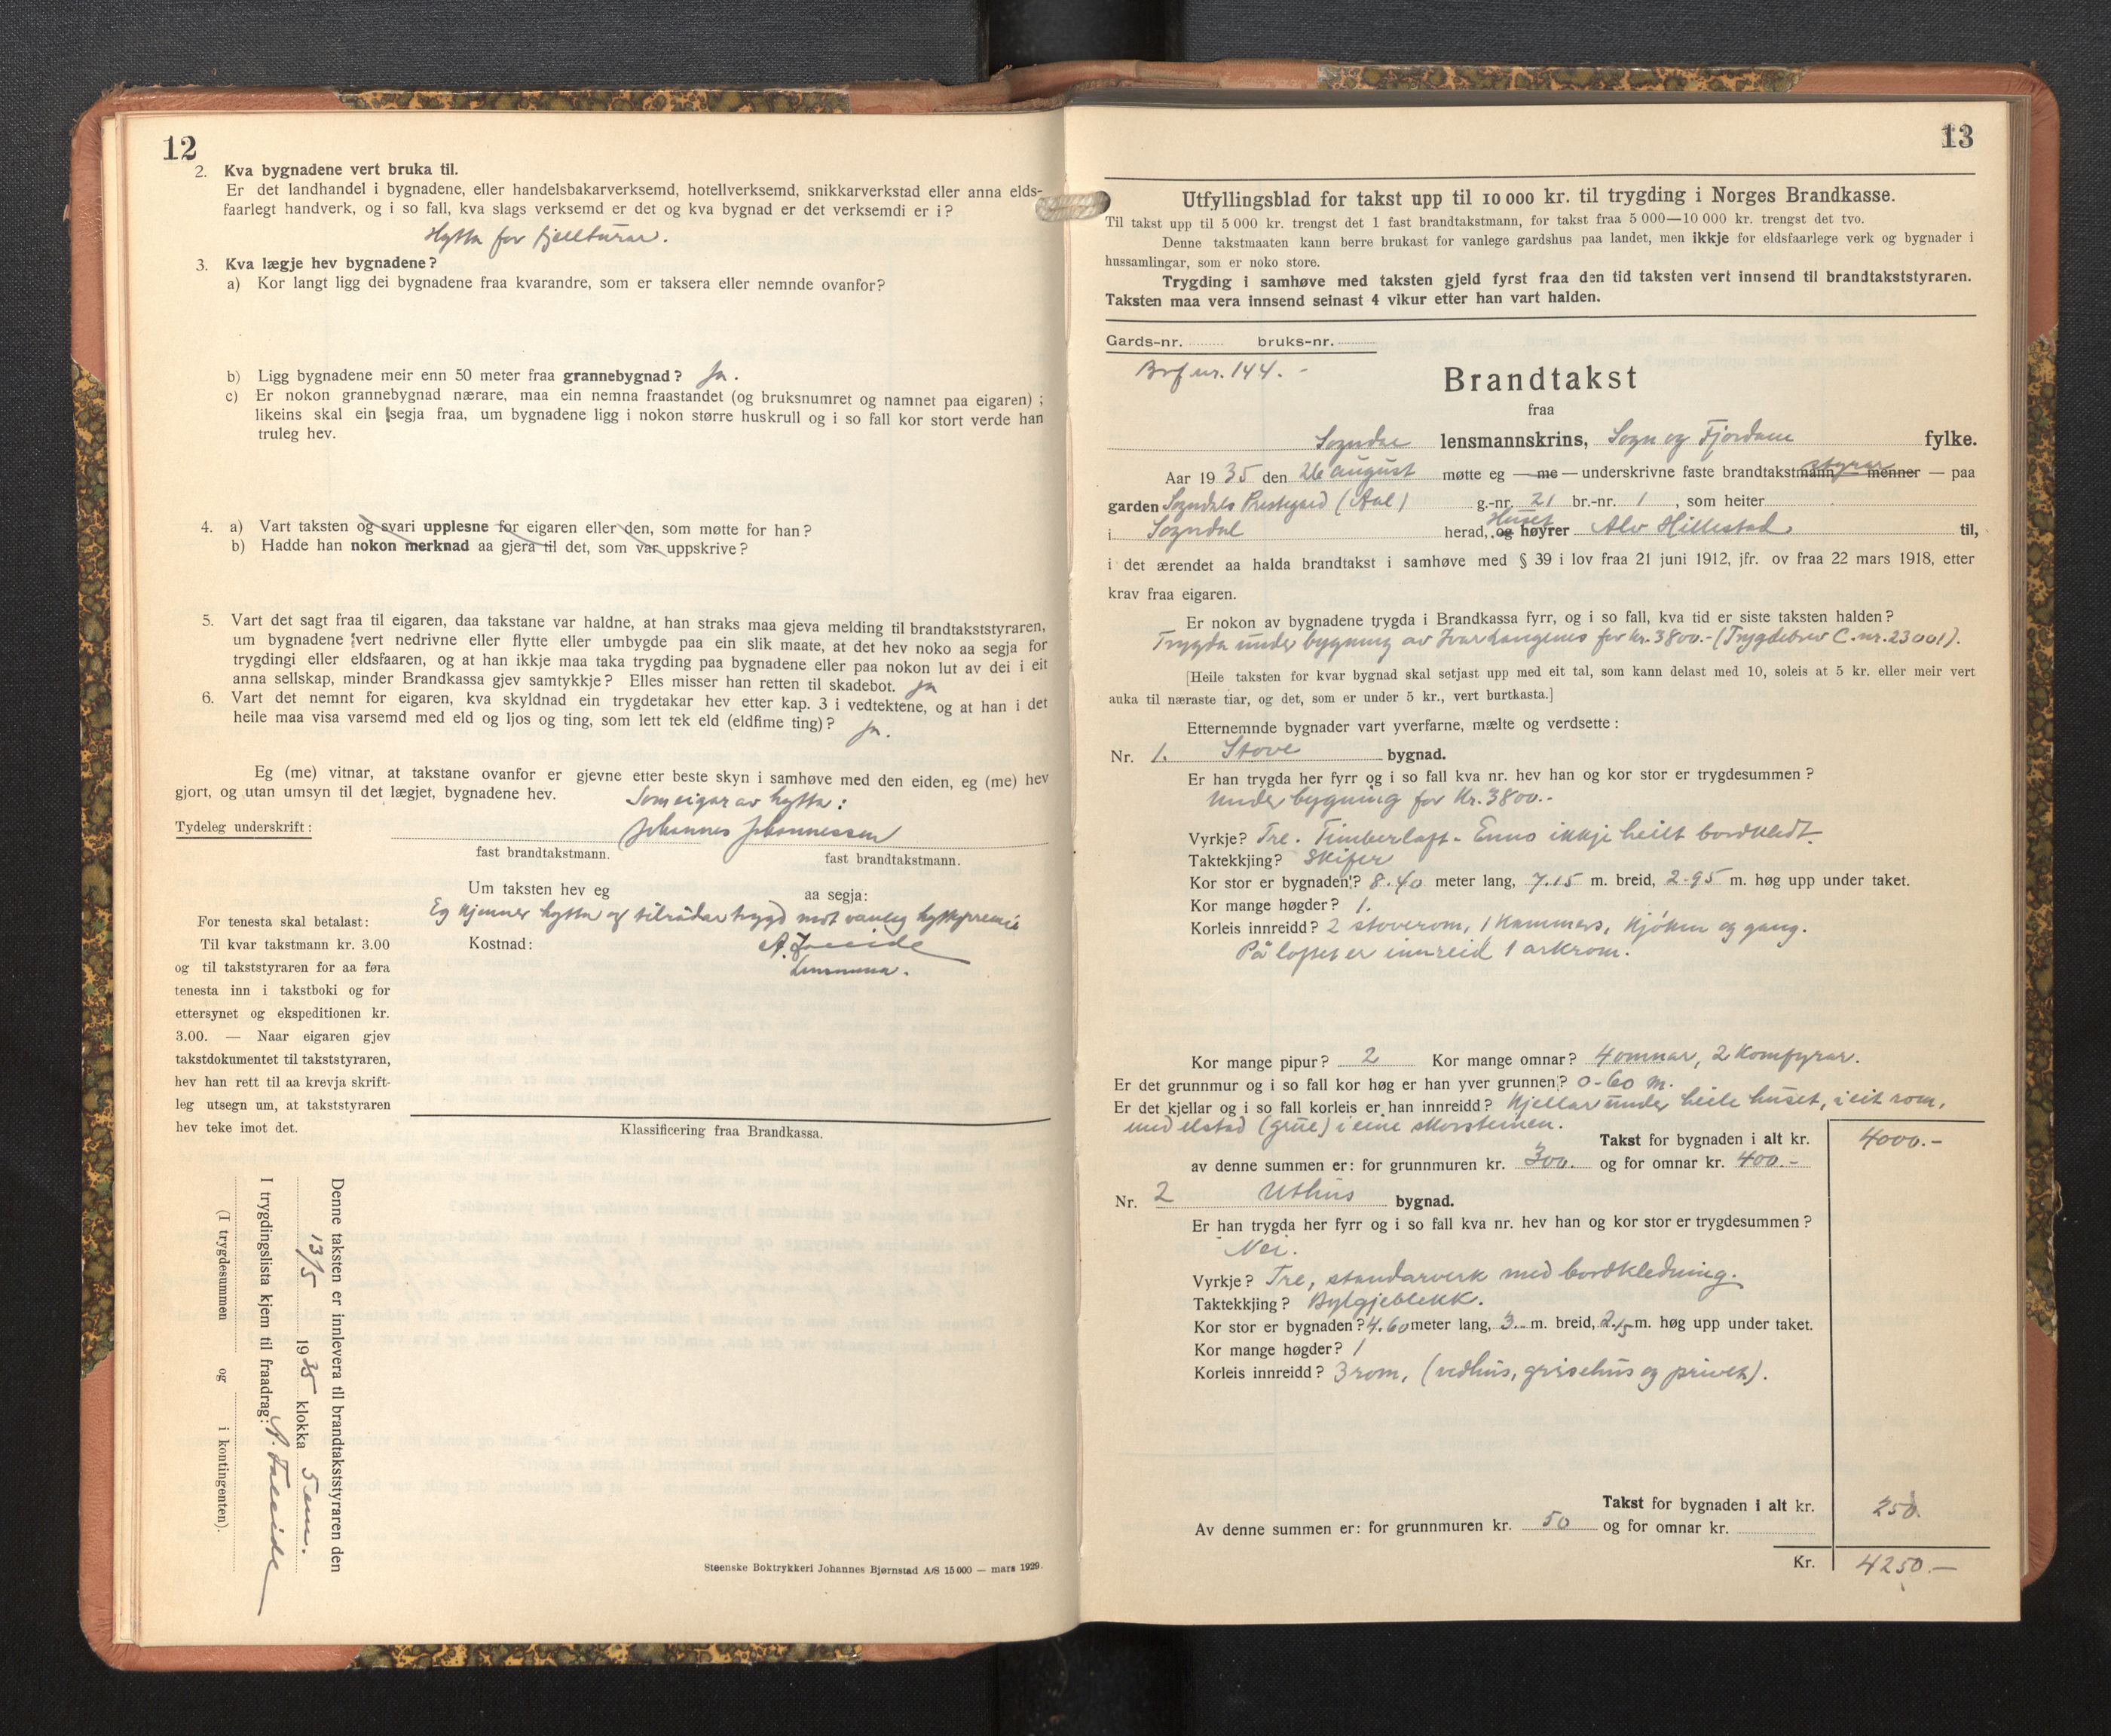 12
2. Kva bygnadene vert bruka til.
Er det landhandel i bygnadene, eller handelsbakarverksemd, hotellverksemd, snikkarverkstad eller anna elds-
faarlegt handverk, og i so fall, kva slags verksemd er det og kva bygnad er det verksemdi er i?
Hytta for fjellturar.
3. Kva lægje hev bygnadene?
a) Kor langt ligg dei bygnadene fraa kvarandre, som er taksera eller nemnde ovanfor?
b) Ligg bygnadene meir enn 50 meter fraa grannebygnad? Ja.
c) Er nokon grannebygnad nærare, maa ein nemna fraastandet (og bruksnumret og namnet paa eigaren) ;
likeins skal ein segja fraa, um bygnadene ligg i nokon større huskrull og i so fall kor stort verde han
truleg hev.
4. a) Vart taksten og svari upplesne for eigaren eller den, som møtte for han?
b) Hadde han nokon merknad aa gjera til det, som var uppskrive?
5. Vart det sagt fraa til eigaren, daa takstane var haldne, at han straks maa gjeva melding til brandtakststyraren,
um bygnadene vert nedrivne eller flytte eller umbygde paa ein slik maate, at det hev noko aa segja for
trygdingi eller eldsfaaren, og at han ikkje maa taka trygding paa bygnadene eller paa nokon lut av dei i eit
anna sellskap, minder Brandkassa gjev samtykkje? Elles misser han retten til skadebot. Ja
6. Vart det nemnt for eigaren, kva skyldnad ein trygdetakar hev etter kap. 3 i vedtektene, og at han i det
heile maa visa varsemd med eld og ljos og ting, som lett tek eld (eldfime ting)? Ja.
Eg (me) vitnar, at takstane ovanfor er gjevne etter beste skyn i samhøve med den eiden, eg (me) hev
gjort, og utan umsyn til det lægjet, bygnadene hev. Som eigar av hytta:
Tydeleg underskrift: Johannes Johannessen
fast brandtakstmann. fast brandtakstmann.
Um taksten hev eg aa segja:
Eg kjenner hytta og tilrådar trygd mot vanleg hyttepremie
Kostnad:
Lensmann.
For tenesta skal betalast:
Til kvar takstmann kr. 3.00
og til takststyraren for aa føra
tenesta inn i takstboki og for
ettersynet og ekspeditionen kr.
3.00. — Naar eigaren gjev
takstdokumentet til takststyraren,
hev han rett til aa krevja skrift-
leg utsegn um, at takststyraren
hev teke imot det.
Klassificering fraa Brandkassa.
Denne taksten er innlevera til brandtakststyraren den
13/5 1935 klokka 5 em.
I trygdingslista kjem til fraadrag:
(I trygdesummen og i kontingenten).
Steenske Boktrykkeri Johannes Bjørnstad A/S 15 000 — mars 1929.
13
Utfyllingsblad for takst upp til 10 000 kr. til trygding i Norges Brandkasse.
Til takst upp til 5 000 kr. trengst det 1 fast brandtakstmann, for takst fraa 5 000—10 000 kr. trengst det tvo.
Denne takstmaaten kann berre brukast for vanlege gardshus paa landet, men ikkje for eldsfaarlege verk og bygnader i
hussamlingar, som er noko store.
Trygding i samhøve med taksten gjeld fyrst fraa den tid taksten vert innsend til brandtakststyraren.
Taksten maa vera innsend seinast 4 vikur etter han vart halden.
Gards-nr. bruks-nr.
Brf nr. 144. -
Brandtakst
fraa
Sogndal lensmannskrins, Sogn og Fjordane fylke.
Aar 1935 den 26 august møtte eg — me — underskrivne faste brandtakstmann styrar menner — paa
garden Sogndals Prestegard (Aal) g.-nr. 21 br.-nr. 1, som heiter
i Sogndal herad, og Huset høyrer Alv Hillestad til,
i det ærendet aa halda brandtakst i samhøve med § 39 i lov fraa 21 juni 1912, jfr. ov fraa 22 mars 1918, etter
krav fraa eigaren.
Er nokon av bygnadene trygda i Brandkassa fyrr, og i so fall, kva tid er siste taksten halden?
Trygda under bygning av Ivar Langenes for kr. 3800.- (Trygdebrev C. nr. 23001).
[Heile taksten for kvar bygnad skal setjast upp med eit tal, som kann delast med 10, soleis at 5 kr. eller meir vert
auka til næraste tiar, og det, som er under 5 kr., vert burtkasta.]
Etternemnde bygnader vart yverfarne, mælte og verdsette :
Nr. 1. Stove bygnad.
Er han trygda her fyrr og i so fall kva nr. hev han og kor stor er trygdesummen ?
Under bygning for Kr. 3800.-
Vyrkje? Tre. Timberlaft - Enno ikkje heilt bordkledt.
Taktekkjing? Skifer
Kor stor er bygnaden? 8.40 meter lang, 7.15 m. breid, 2.95 m. høg upp under taket.
Kor mange høgder? 1.
Korleis innreidd? 2 stoverom, 1 Kammers, Kjøken og gang.
På loftet er innreid 1 arkrom.
Kor mange pipur? 2 Kor mange omnar? 4 omnar, 2 Komfyrar.
Er det grunnmur og i so fall kor høg er han yver grunnen? 0.60 m.
Er det kjellar og i so fall korleis er han innreidd? Kjellar under heile huset, i eit rom,
med elstad (grue) i eine skorsteinen.
Takst for bygnaden i alt kr. 4000.-
av denne summen er: for grunnmuren kr. 300. og for omnar kr. 400.-
Nr. 2 Uthus bygnad.
Er han trygda her fyrr og i so fall kva nr. hev han og kor stor er trygdesummen ?
Nei.
Vyrkje? Tre, standarverk med bordkledning.
Taktekkjing ? Bylgjeblekk.
Kor stor er bygnaden? 4.60 meter lang, 3 m. breid, 2.15 m. høg upp under taket.
Kor mange høgder? 1
Korleis innreidd ? 3 rom, (vedhus, grisehus og privet).
Takst for bygnaden i alt kr. 250.
Av denne summen er: for grunnmuren kr. 50 og for omnar kr.
Kr. 4250.—